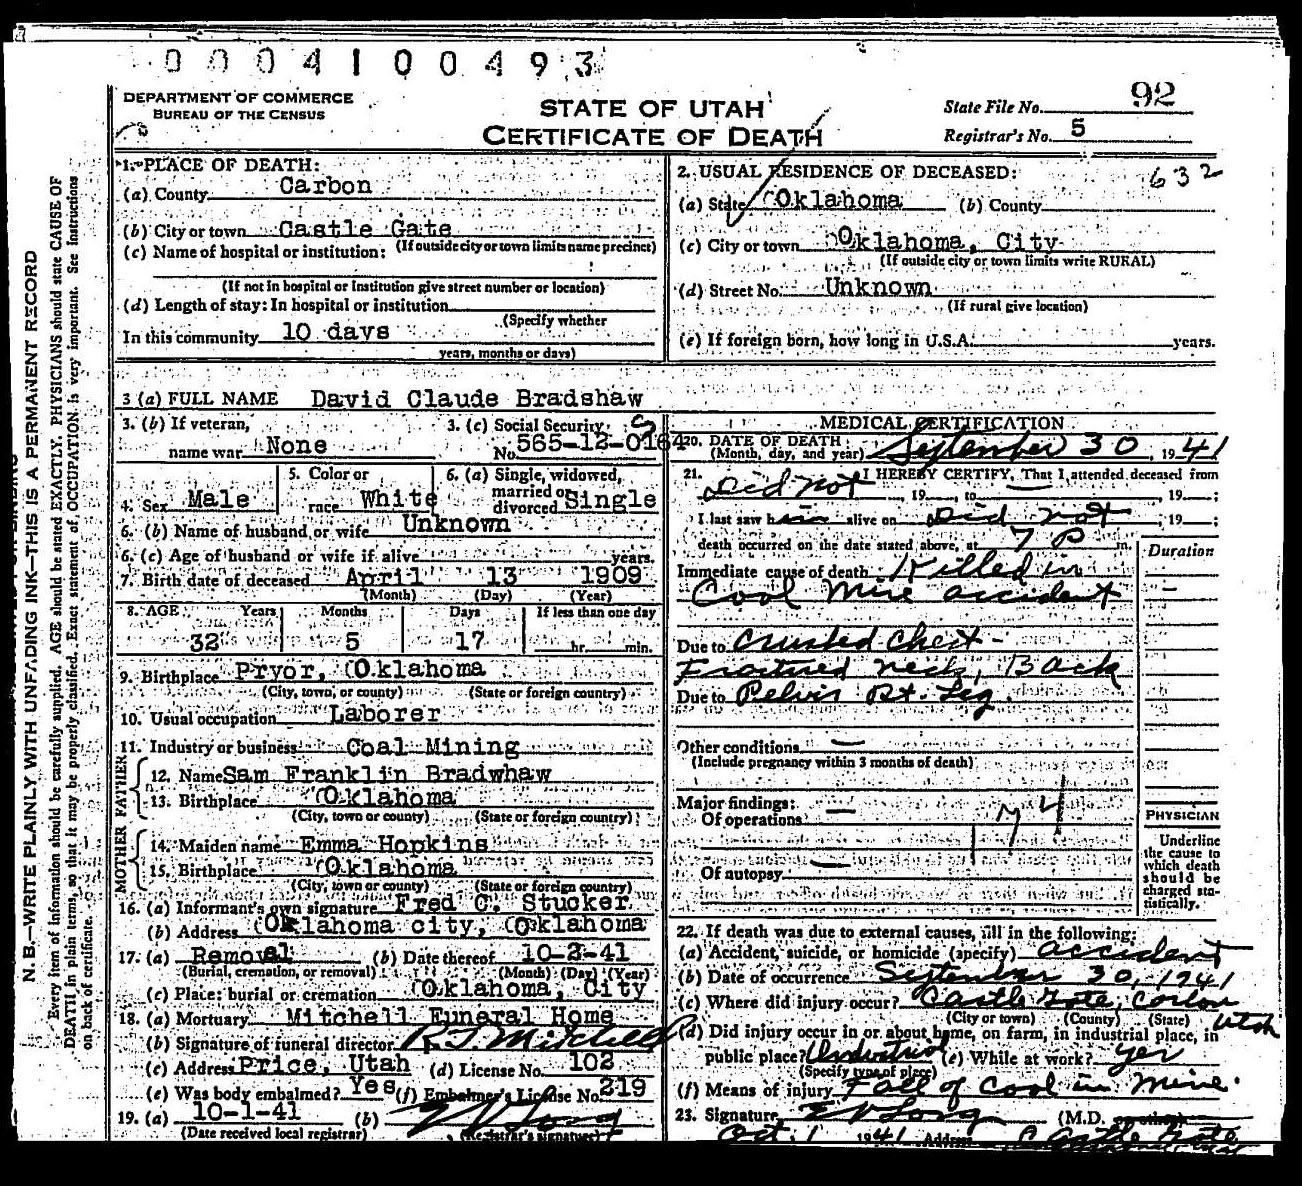 0004100493
92
DEPARTMENT OF COMMERCE
BUREAU OF THE CENSUS
STATE OF UTAH
CERTIFICATE OF DEATH
State File No.
Registrar's No. 5
N. B.—WRITE PLAINLY WITH UNFADING INK—THIS IS A PERMANENT RECORD
Every item of information should be carefully supplied. AGE should be stated EXACTLY. PHYSICIANS should state CAUSE OF
DEATH in plain terms, so that it may be properly classified. Exact statement of OCCUPATION is very important. See Instructions
on back of certificate.
1. PLACE OF DEATH:
(a) County Carbon
(b) City or town Castle Gate
(If outside city or town limits name precinct)
(c) Name of hospital or institution:
(If not in hospital or institution give street number or location)
(d) Length of stay: In hospital or institution
(Specify whether
In this community 10 days
years, months or days)
2. USUAL RESIDENCE OF DECEASED:
632
(a) State Oklahoma (b) County
(c) City or town Oklahoma, City
(If outside city or town limits write RURAL)
(d) Street No. Unknown
(If rural give location)
(e) If foreign born, how long in U.S.A. years.
3 (a) FULL NAME David Claude Bradshaw
3. (b) If veteran,
name war None
3. (c) Social Security
No. 565-12-0164
4. Sex Male
5. Color or
race White
6. (a) Single, widowed,
married or
divorced Single
6. (b) Name of husband or wife Unknown
6. (c) Age of husband or wife if alive years.
7. Birth date of deceased April 13 1909
(Month) (Day) (Year)
8. AGE Years Months Days If less than one day
32 5 17 hr. min.
9. Birthplace Pryor, Oklahoma
(City, town, or county) (State or foreign country)
10. Usual occupation Laborer
11. Industry or business Coal Mining
FATHER
12. Name Sam Franklin Bradwhaw
13. Birthplace Oklahoma
(City, town or county) (State or foreign country)
MOTHER
14. Maiden name Emma Hopkins
15. Birthplace Oklahoma
(City, town or county) (State or foreign country)
16. (a) Informant's own signature Fred C. Stucker
(b) Address Oklahoma city, Oklahoma
17. (a) Removal (b) Date thereof 10-2-41
(Burial, cremation, or removal) (Month) (Day) (Year)
(c) Place: burial or cremation Oklahoma, City
18. (a) Mortuary Mitchell Funeral Home
(b) Signature of funeral director R T Mitchell
(c) Address Price, Utah (d) License No. 102
(e) Was body embalmed? Yes (f) Embalmer's License No. 219
19. (a) 10-1-41 (b) E V Long
(Date received local registrar) (Registrar's signature)
MEDICAL CERTIFICATION
20. DATE OF DEATH:
(Month, day, and year) September 30, 1941
21. I HEREBY CERTIFY, That I attended deceased from
Did not, 19 , to , 19 ;
I last saw him alive on Did not, 19 ;
death occurred on the date stated above, at 7 P m.
Duration
Immediate cause of death Killed in
Coal Mine accident
Due to Crushed Chest -
Fractured neck, Back
Due to Pelvis Rt. Leg.
Other conditions —
(Include pregnancy within 3 months of death)
Major findings:
Of operations —
Of autopsy —
PHYSICIAN
Underline
the cause to
which death
should be
charged sta-
tistically.
22. If death was due to external causes, fill in the following:
(a) Accident, suicide, or homicide (specify) accident
(b) Date of occurrence September 30, 1941
(c) Where did injury occur? Castle Gate, Carbon Utah
(City or town) (County) (State)
(d) Did injury occur in or about home, on farm, in industrial place, in
public place? Industrial (e) While at work? yes
(Specify type of place)
(f) Means of injury Fall of coal in mine.
23. Signature E V Long (M.D. or other)
Oct. 1 1941 Address Castle Gate